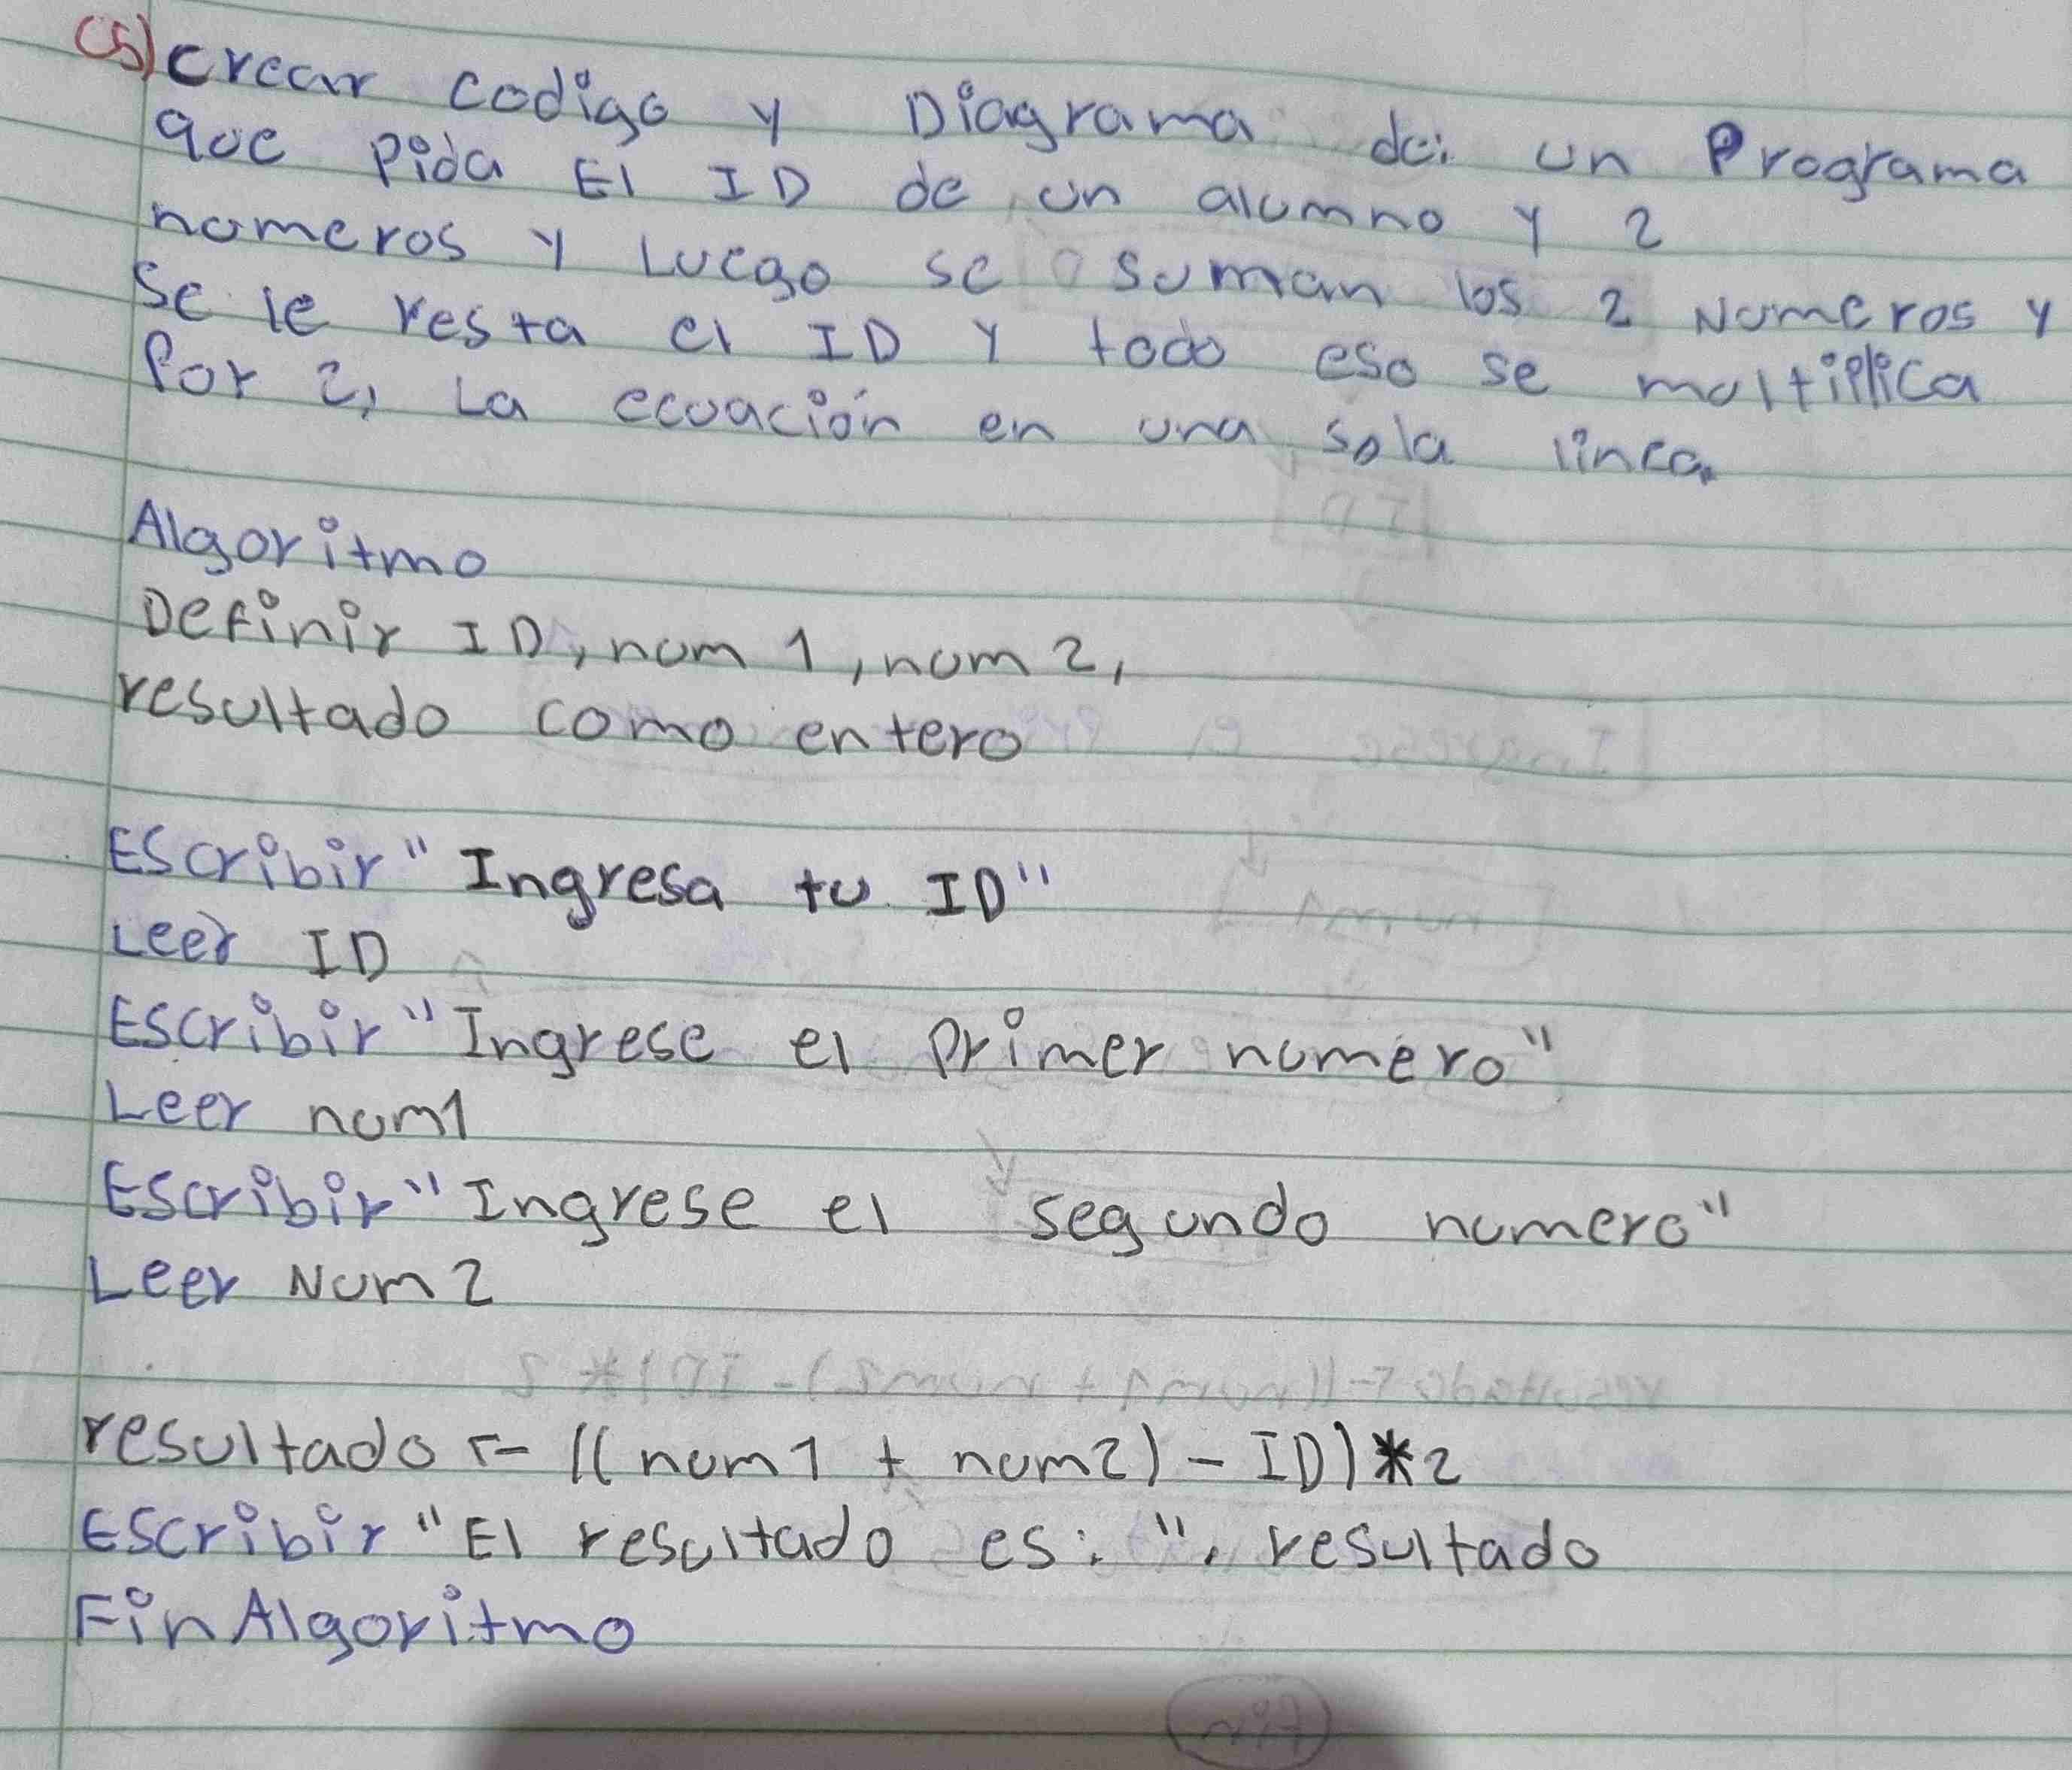 C5) Crear codigo y Diagrama de un Programa
que pida El ID de un alumno y 2
numeros y Luego se suman los 2 Numeros y
Se le resta el ID y todo eso se multiplica
Por 2, La ecuación en una sola linea.
Algoritmo
Definir ID, num 1, num 2,
resultado como entero
Escribir "Ingresa tu ID"
Leer ID
Escribir "Ingrese el primer numero"
Leer num1
Escribir "Ingrese el segundo numero"
Leer Num2
resultado <- ((num1 + num2) - ID) * 2
Escribir "El resultado es: ", resultado
FinAlgoritmo